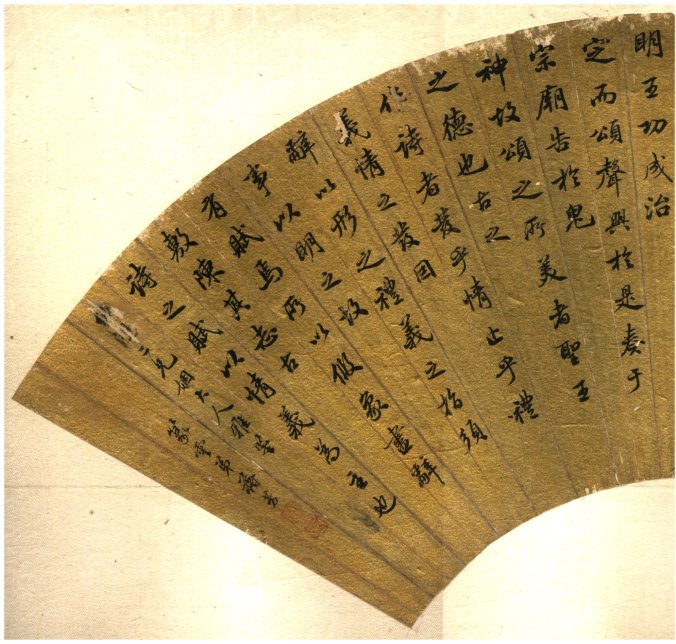 明王功成治
定而頌聲興於是奏于
宗廟告於鬼
神故頌之所美者聖王
之德也古之
作詩者發乎情止乎禮
義情之發因
辭以形之禮義之指須
事以明之故
有賦焉所以假象盡辭
敷陳其志古
詩之賦以情義為主也
二兄姻大人雅鑒
篆雲弟蔣